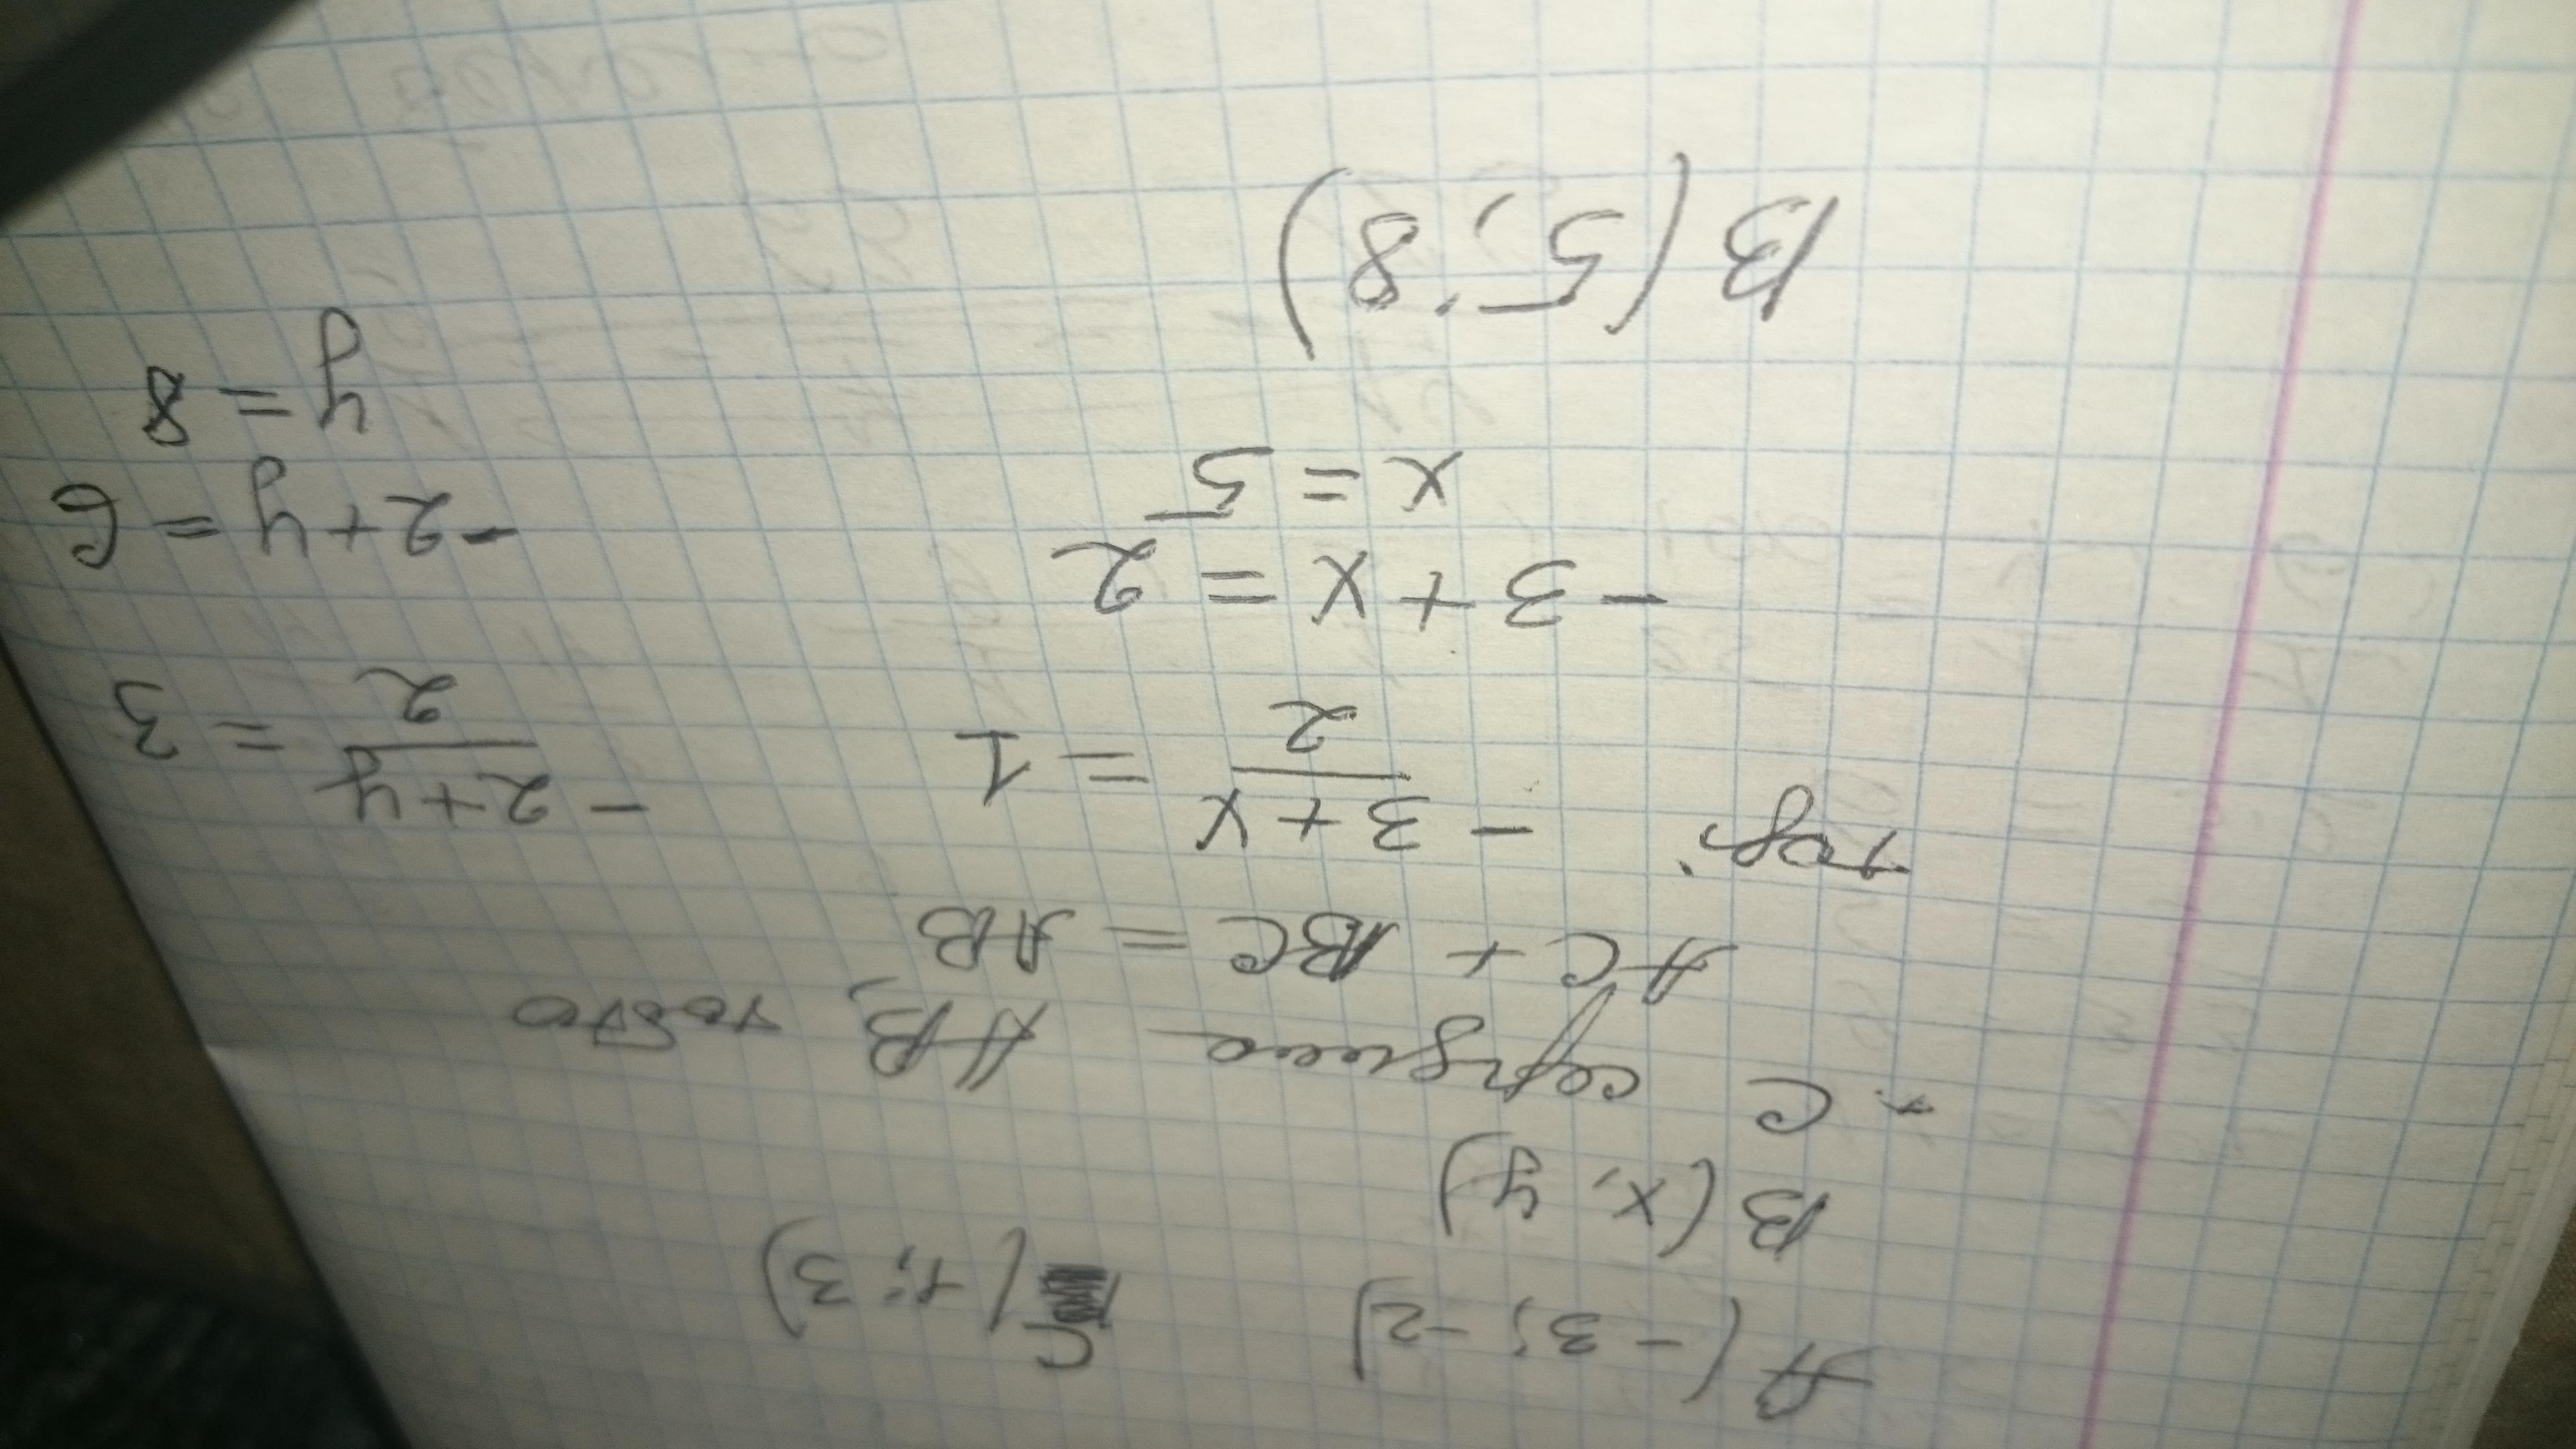 A (-3; -2) C (1; 3)
B (x, y)
т. C середина AB, тобто
AC + BC = AB
тоді
-3+x / 2 = 1 -2+y / 2 = 3
-3+x = 2 -2+y = 6
x = 5 y = 8
B (5; 8)